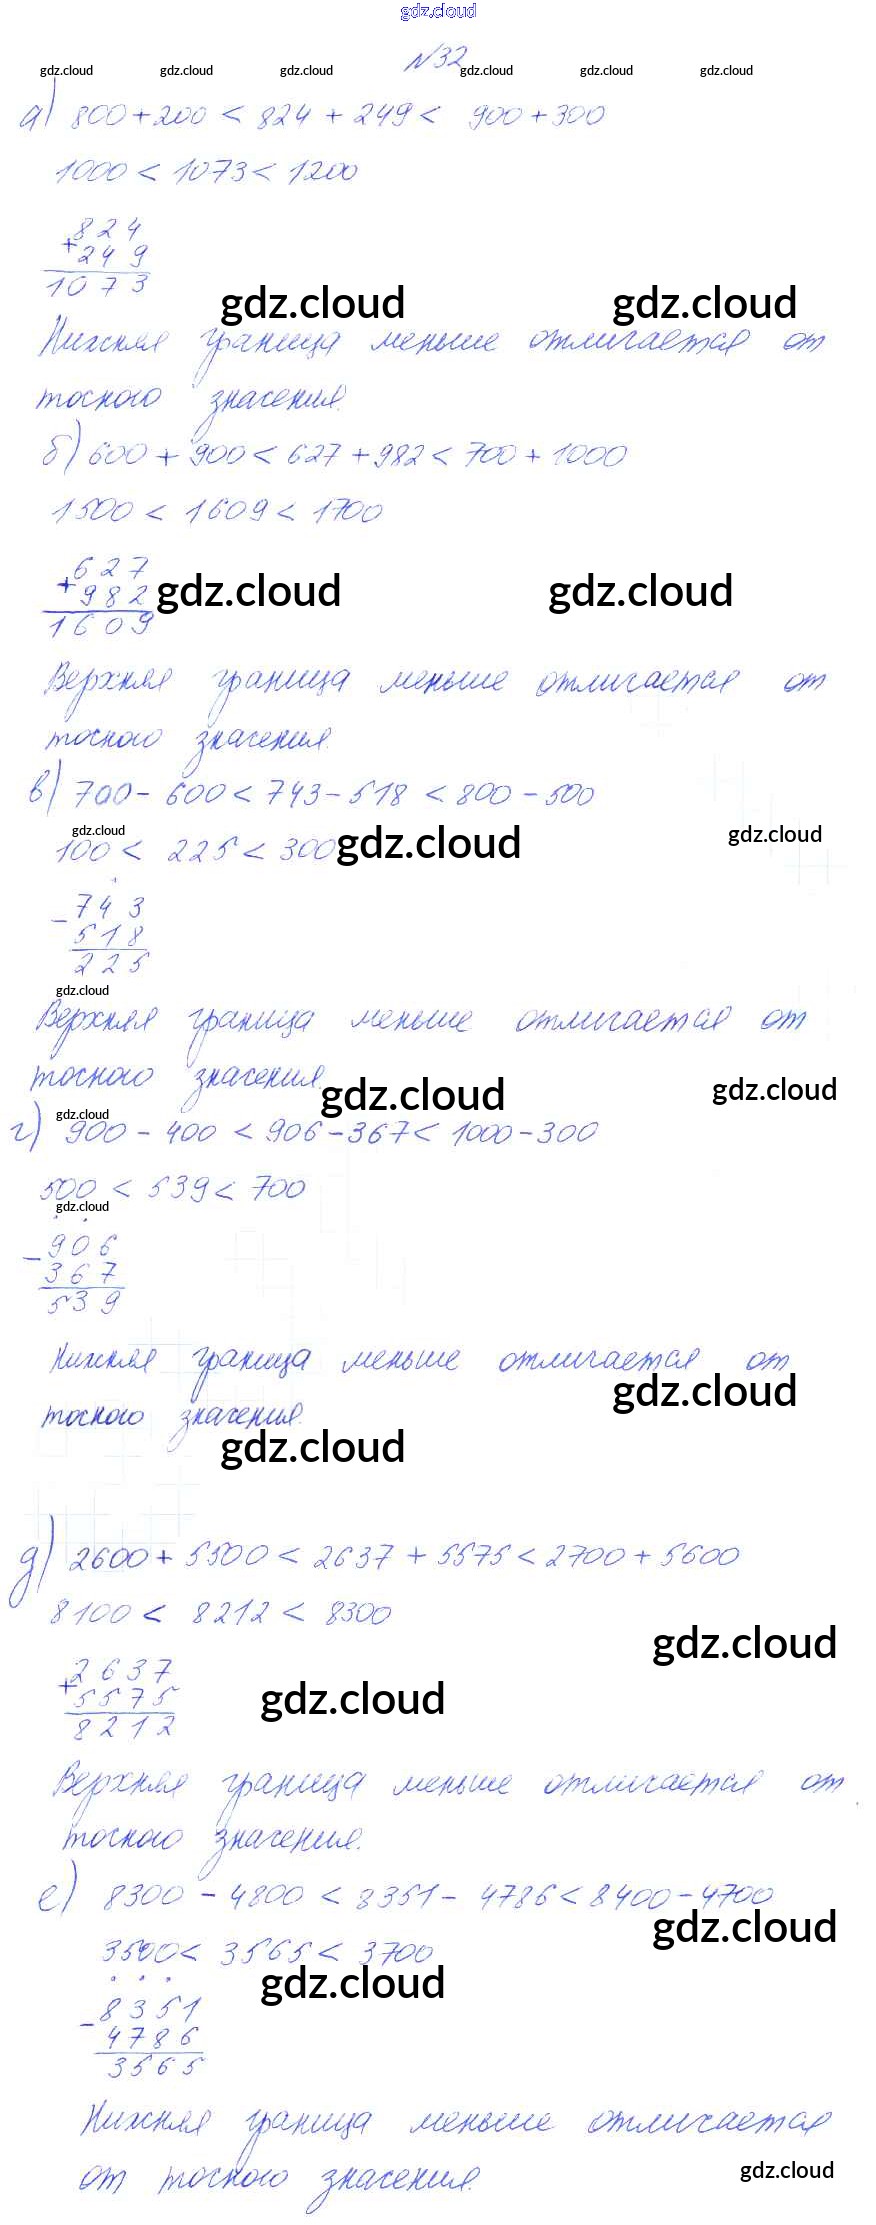 gdz.cloud
№32
gdz.cloud gdz.cloud gdz.cloud gdz.cloud gdz.cloud gdz.cloud
а) 800+200 < 824 + 249 < 900+300
1000 < 1073 < 1200
824
+ 249
1073
gdz.cloud gdz.cloud
Нижняя граница меньше отличается от
точного значения.
б) 600 + 900 < 627 + 982 < 700 + 1000
1500 < 1609 < 1700
627
+ 982 gdz.cloud gdz.cloud
1609
Верхняя граница меньше отличается от
точного значения.
в) 700 - 600 < 743 - 518 < 800 - 500
gdz.cloud gdz.cloud gdz.cloud
100 < 225 < 300
743
- 518
225
gdz.cloud
Верхняя граница меньше отличается от
точного значения.
gdz.cloud gdz.cloud
gdz.cloud
г) 900 - 400 < 906 - 367 < 1000 - 300
500 < 539 < 700
gdz.cloud
906
- 367
539
Нижняя граница меньше отличается от
gdz.cloud
точного значения.
gdz.cloud
д) 2600 + 5500 < 2637 + 5575 < 2700 + 5600
8100 < 8212 < 8300
gdz.cloud
2637
+ 5575 gdz.cloud
8212
Верхняя граница меньше отличается от
точного значения.
е) 8300 - 4800 < 8351 - 4786 < 8400 - 4700
gdz.cloud
3500 < 3565 < 3700
gdz.cloud
8351
- 4786
3565
Нижняя граница меньше отличается
от точного значения.
gdz.cloud